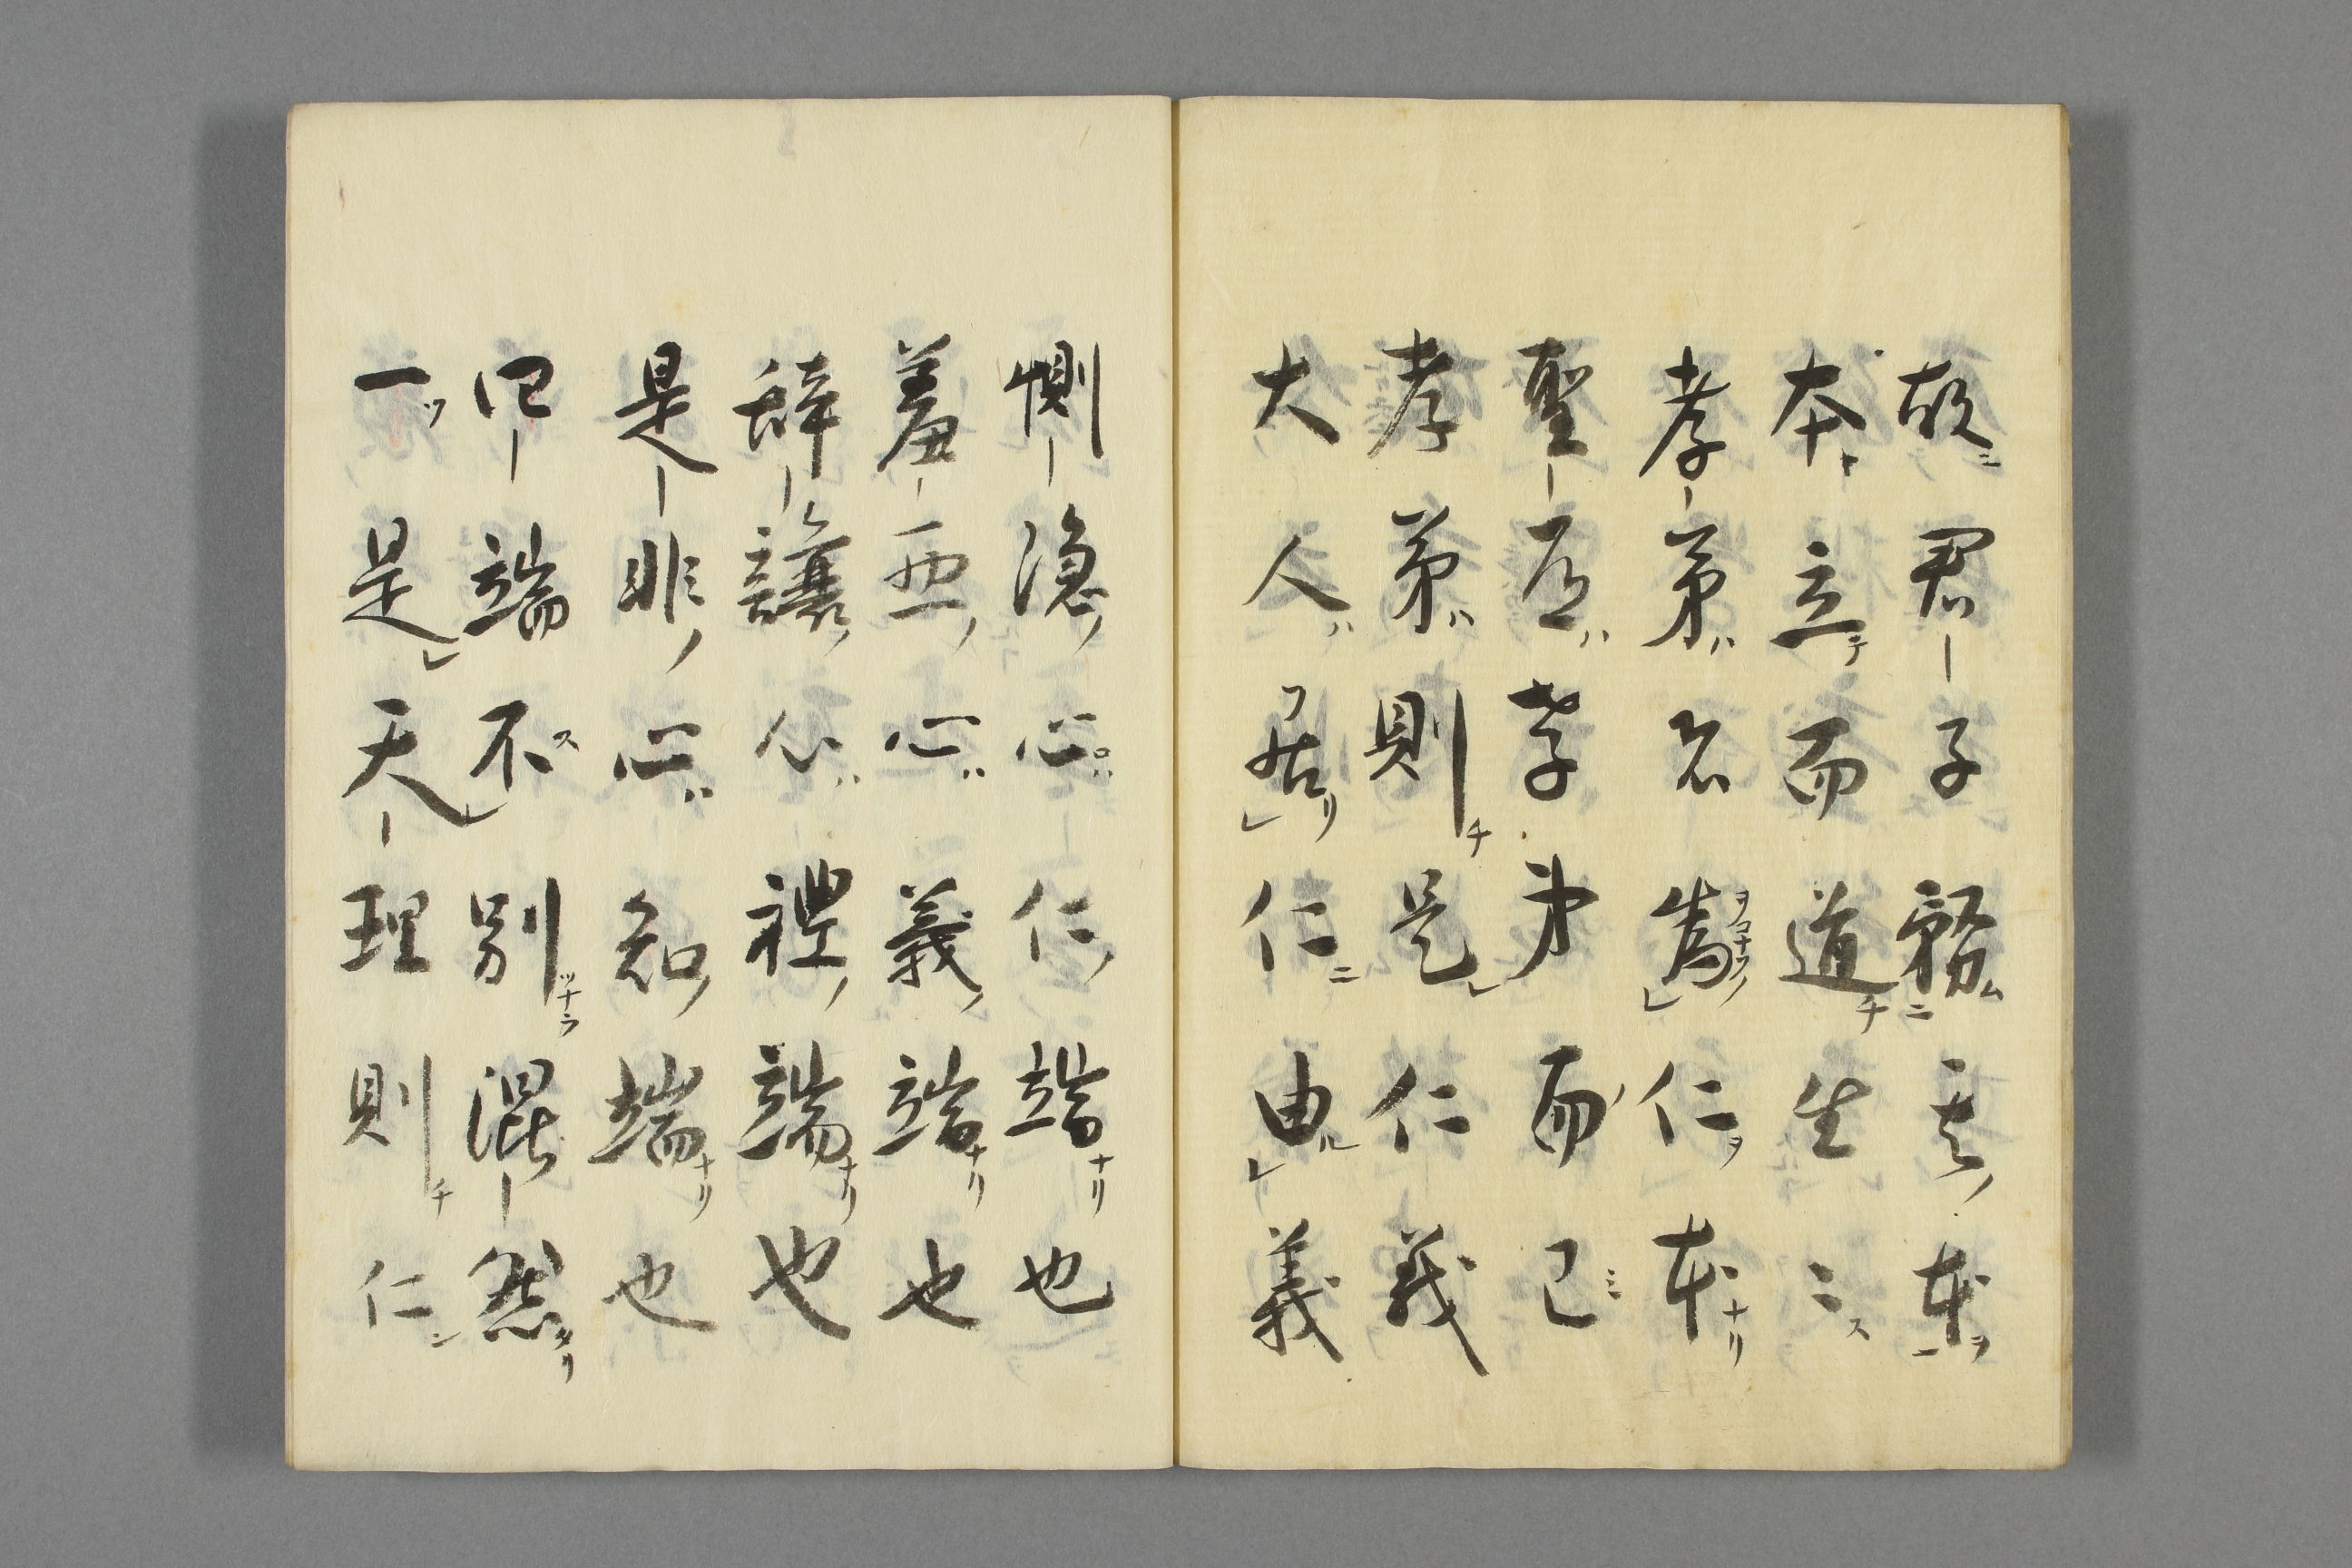 故君子務其本
本立而道生々
孝弟者為仁本
聖道孝弟而已
孝弟則是仁義
大人居仁由義
惻隠心仁端也
羞悪心義端也
辞讓心禮端也
是非心知端也
四端不別混然
一是天理則仁